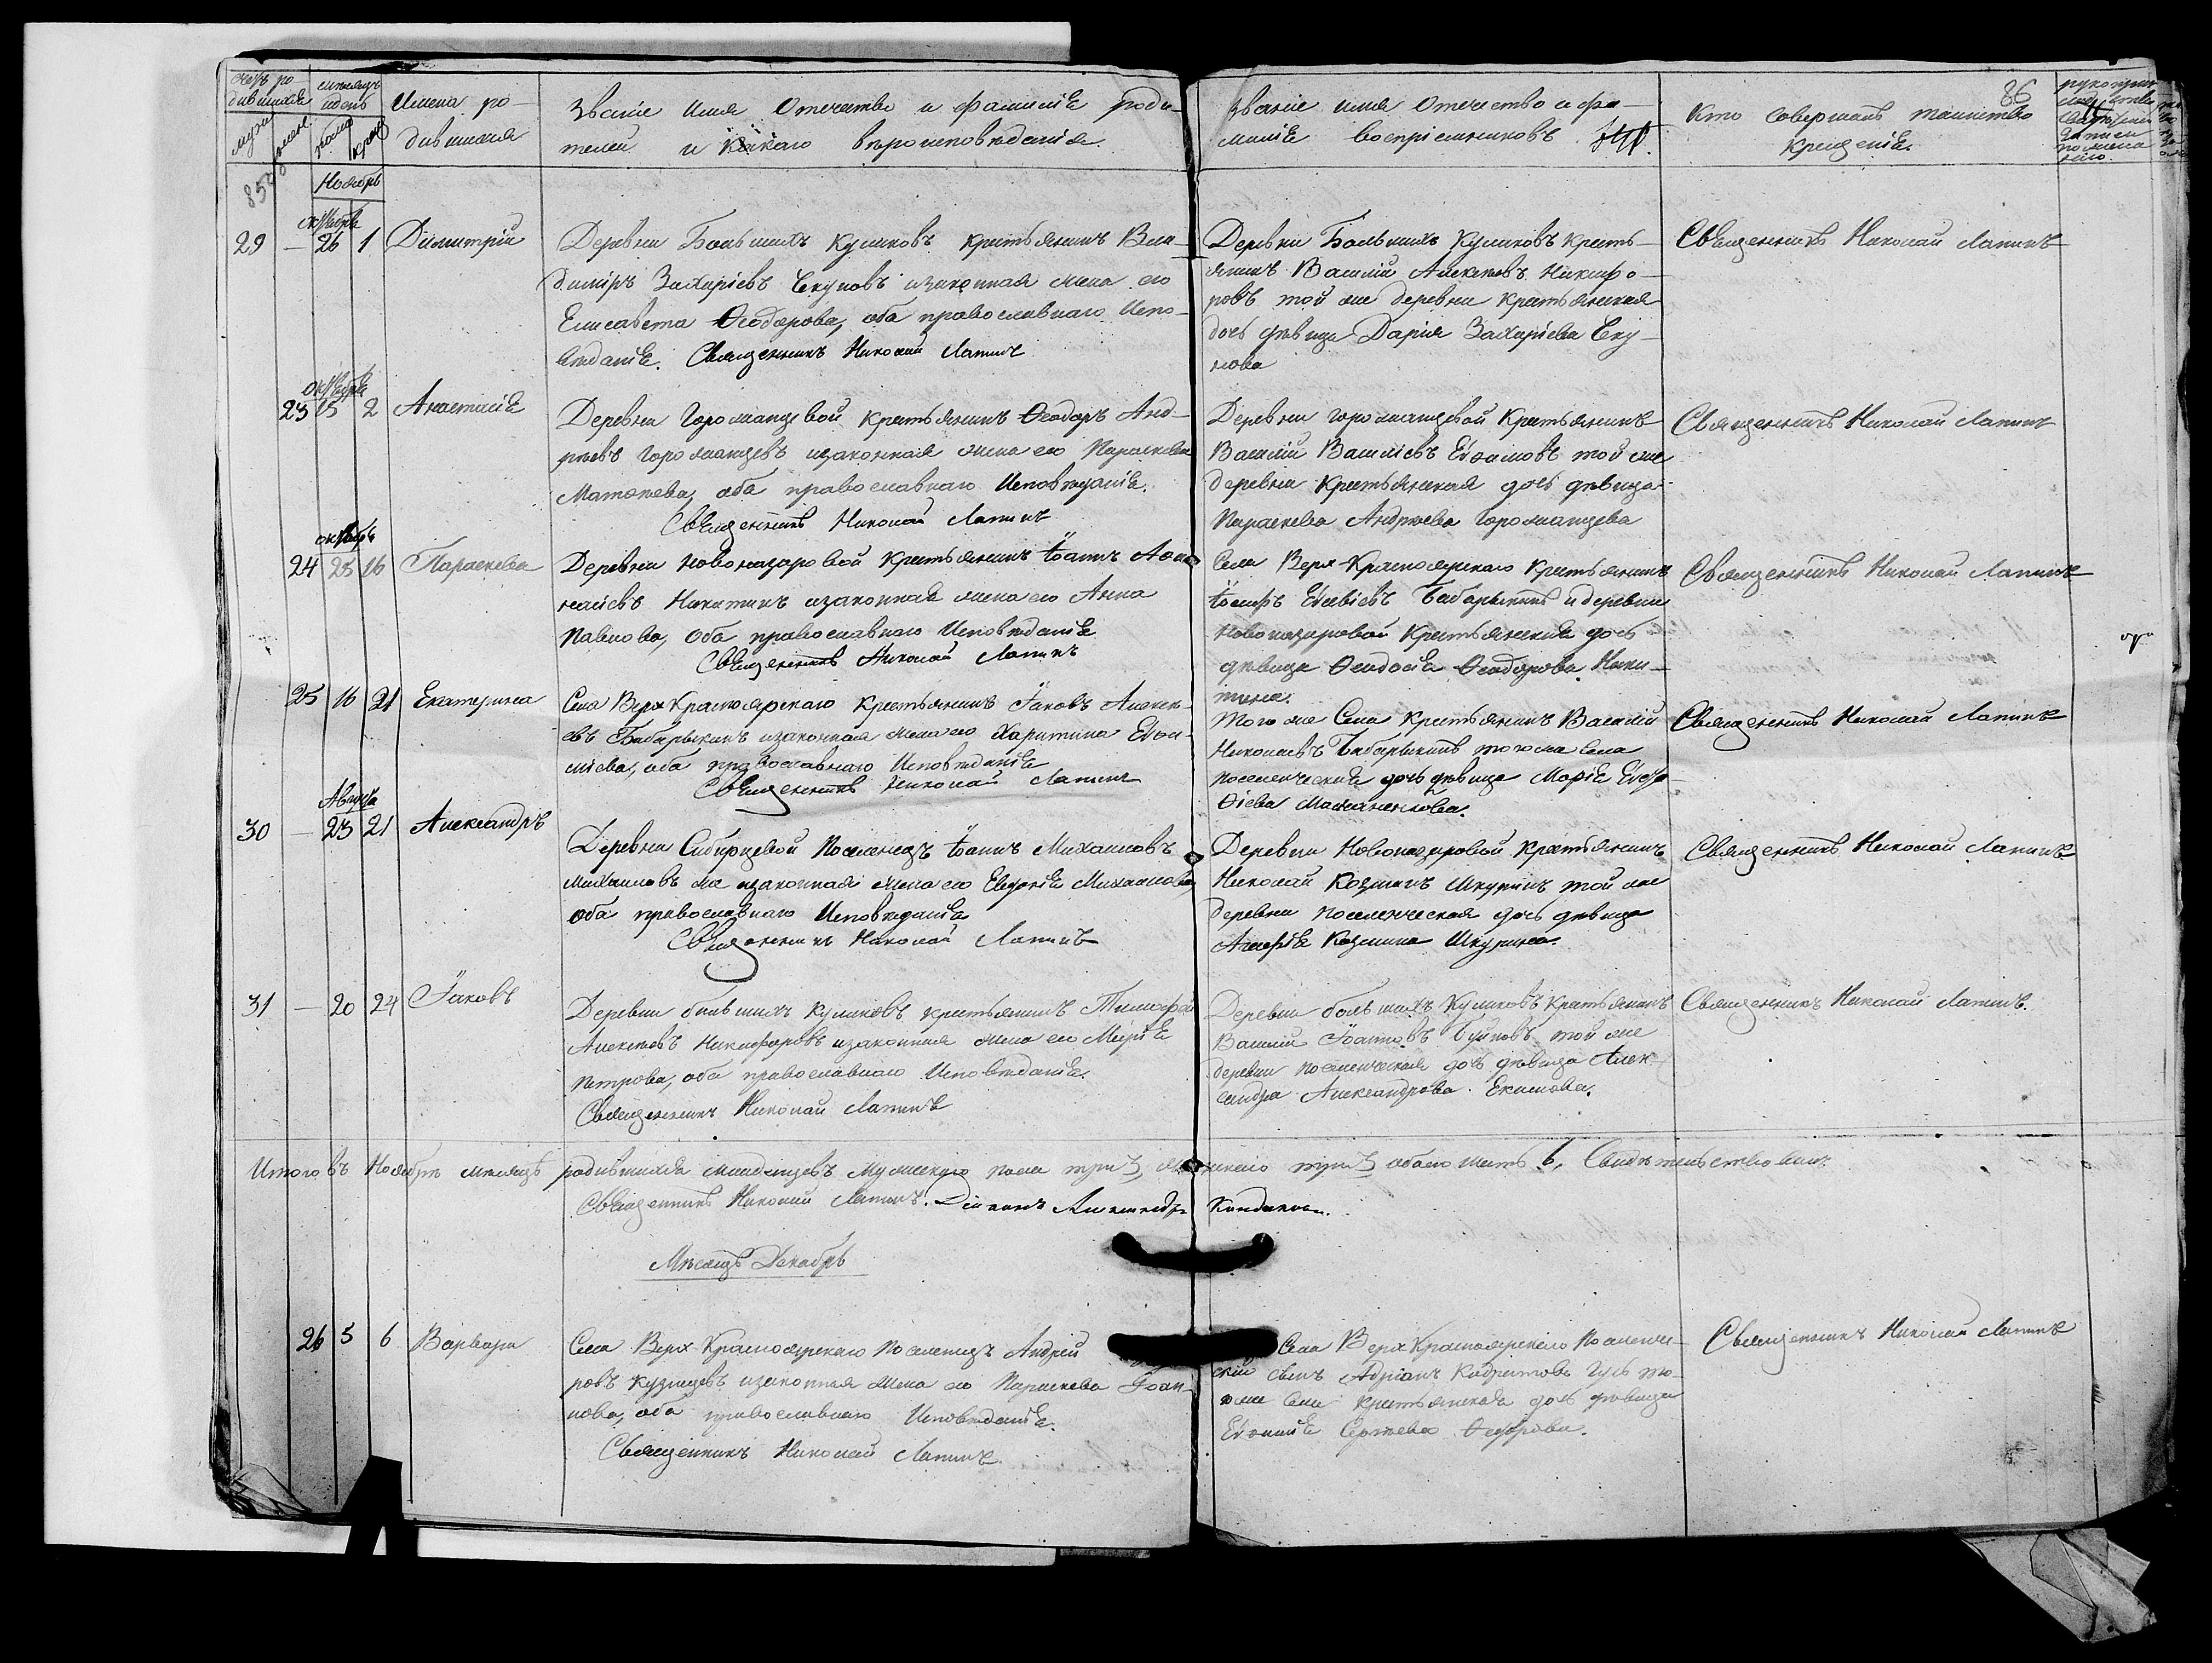 Имена ро-
дившихся
Званіе имя Отечество и фамилія роди-
телей и какаго вѣроисповѣданія
Званіе имя отечество и фа-
миліе воспріемниковъ
Кто совершалъ таинство
крещенія.
86
Ноябрь
октября
29 — 26 1 Димитрій
Деревни Большихъ Куликовъ крестьянинъ Вла-
диміръ Захаріевъ Секуновъ изаконная жена его
Елисавета Ѳеодорова, оба православнаго Испо-
вѣданія. Священникъ Николай Лапинъ
Деревни Большихъ Куликовъ кресть-
янинъ Василій Алексѣевъ Никифо-
ровъ той же деревни крестьянская
дочь дѣвица Дарія Захаріева Секу-
нова
Священникъ Николай Лапинъ
октября
23 15 2 Анастасія
Деревни Горожанцевой крестьянинъ Ѳеодоръ Анд-
рѣевъ Горожанцевъ изаконная жена его Параскева
Матѳеева, оба православнаго Исповѣданія.
Священникъ Николай Лапинъ
Деревни Горожанцевой Крестьянинъ
Василій Василіевъ Евѳимовъ той же
деревни Крестьянская дочь дѣвица
Параскева Андрѣева Горожанцева
Священникъ Николай Лапинъ
октябрь
24 25 16 Параскева
Деревни Новоназаровой Крестьянинъ Іоаннъ Аѳа-
насіевъ Никитинъ изаконная жена его Анна
Павлова, Оба православнаго Исповѣданія
Священникъ Николай Лапинъ
Села Верх-Красноярскаго Крестьянинъ
Іосифъ Евсевіевъ Бабарыкинъ и деревни
Новоназаровой Крестьянская дочь
дѣвица Ѳеодосія Ѳеодорова Ники-
тина.
Священникъ Николай Лапинъ
25 16 21 Екатерина
Села Верх Красноярскаго Крестьянинъ Іаковъ Алексѣ-
евъ Бабарыкинъ изаконная жена его Харитина Евѳи-
міева, оба православнаго Исповѣданія
Священникъ Николай Лапинъ
Того же Села Крестьянинъ Василій
Николаевъ Бабарыкинъ того же села
поселенческая дочь дѣвица Марія
Священникъ Николай Лапинъ
Августа
30 — 23 21 Александръ
Деревни Сибирцевой Поселенецъ Іоаннъ Михаиловъ
Михаиловъ же изаконная жена его Евдокія Михаилова
оба православнаго Исповѣданія
Священникъ Николай Лапинъ
Деревни Новоназаровой Крестьянинъ
Николай Козминъ Шкуринъ той же
деревни поселенческая дочь дѣвица
Агафія Козмина Шкурина.
Священникъ Николай Лапинъ
31 — 20 24 Іаковъ
Деревни большихъ Куликовъ крестьянинъ Тимофей
Алексѣевъ Никифоровъ изаконная жена его Марія
Петрова, оба православнаго Исповѣданія.
Священникъ Николай Лапинъ
Деревни большихъ Куликовъ Крестьянинъ
Василій Іоанновъ той же
деревни поселенческая дочь дѣвица Алек-
сандра Александрова Екимова.
Священникъ Николай Лапинъ.
Итого въ Ноябрѣ мѣсяцѣ родившихся младенцевъ Мужескаго пола три 3, женскаго три 3 обоего шесть 6.
Священникъ Николай Лапинъ. Діаконъ Александръ
Мѣсяцъ Декабрь
26 5 6 Варвара
Села Верх-Красноярскаго Поселенецъ Андрей
ровъ Кузнецовъ изаконная жена его Параскева Іоан-
нова, оба православнаго Исповѣданія.
Священникъ Николай Лапинъ
Села Верх Красноярскаго Поселенче-
скій сынъ Адріанъ Кодратовъ Гусь то-
гоже села крестьянская дочь дѣвица
Евѳимія Сергѣева Ѳедорова.
Священникъ Николай Лапинъ